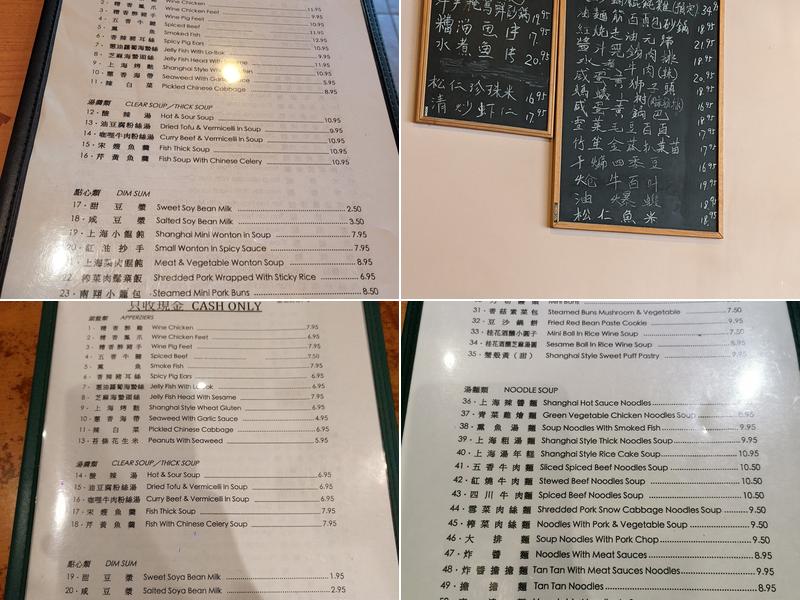 Wine Chicken
Wine Chicken Feet 11.95
Wine Pig Feet 9.95
4 · 五香牛腱 Spiced Beef 10.95
5 · 燻 魚 Smoke Fish 11.95
6 · 香辣豬耳絲 Spicy Pig Ears 12.95
7 · 蔥油蘿蔔海蜇絲 Jelly Fish With Lo-bok 10.95
8 · 芝麻海蜇頭絲 Jelly Fish Head With Sesame 11.95
9 · 上海烤麩 Shanghai Style
10 · 蔥香海帶 Seaweed With Garlic 5.95
11 · 辣白菜 Pickled Chinese Cabbage 8.95
湯羹類 CLEAR SOUP／THICK SOUP
12 · 酸辣湯 Hot & Sour Soup 10.95
13 · 油豆腐粉絲湯 Dried Tofu & Vermicelli In Soup 9.95
14 · 咖喱牛肉粉絲湯 Curry Beef & Vermicelli In Soup 10.95
15 · 宋嫂魚羹 Fish Thick Soup 10.95
16 · 芹黃魚羹 Fish Soup With Chinese Celery 10.95
點心類 DIM SUM
17 · 甜豆漿 Sweet Soy Bean Milk 2.50
18 · 咸豆漿 Salted Soy Bean Milk 3.50
19 · 上海小餛飩 Shanghai Mini Wonton in Soup 7.95
20 · 紅油抄手 Small Wonton In Spicy Sauce 7.95
Meat & Vegetable Wonton Soup 8.95
22 榨菜肉鬆粢飯 Shredded Pork Wrapped With Sticky Rice 6.95
23 · 南翔小籠包 Steamed Mini Pork Buns 8.50
砂鍋 19.95
糟溜魚片 17.95
水煮魚片 20.95
松仁珍珠米 16.95
清炒蝦仁 17.95
油麵筋百頁包砂鍋 18.95
紅燒走油元蹄 21.95
18.95
牛肉(辣)
咸蛋 獅子頭 20.95
螞蟻 樹 16.95
咸蛋黃鍋巴 18.95
雪菜毛豆百頁 17.95
竹笙金菇扒菜苗
干煸四季豆 16.95
牛百叶 19.95
油爆蝦 18.95
松仁魚米 18.95
只收現金 CASH ONLY
APPERZIERS
1 · 糟香醉雞 Wine Chicken 7.95
2 · 糟香鳳爪 Wine Chicken Feet 6.95
3 · 糟香醉豬手 Wine Pig Feet 7.95
4 · 五香牛腱 Spiced Beef 7.50
5 · 燻 魚 Smoke Fish 7.95
6 · 香辣豬耳絲 Spicy Pig Ears 6.95
7 · 蔥油蘿蔔海蜇絲 Jelly Fish With Lo-bok 6.95
8 · 芝麻海蜇頭絲 Jelly Fish Head With Sesame 7.95
9 · 上海烤麩 Shanghai Style Wheat Gluten 6.95
10 · 蔥香海帶 Seaweed With Garlic Sauce 4.95
11 · 辣白菜 Pickled Chinese Cabbage 6.95
13 · 苔條花生米 Peanuts With Seaweed 5.95
湯羹類 CLEAR SOUP／THICK SOUP
14 · 酸辣湯 Hot & Sour Soup 6.95
15 · 油豆腐粉絲湯 Dried Tofu & Vermicelli In Soup 6.95
16 · 咖喱牛肉粉絲湯 Curry Beef & Vermicelli In Soup 6.95
17 · 宋嫂魚羹 Fish Thick Soup 7.95
18 · 芹黃魚羹 Fish With Chinese Celery Soup 7.95
點心類 DIM SUM
19 · 甜豆漿 Sweet Soya Bean Milk 1.95
20 · 咸豆漿 Salted Soya Bean Milk 2.95
Mini Buns
31 · 香菇素菜包 Steamed Buns Mushroom & Vegetable 7.50
32 · 豆沙鍋餅 Fried Red Bean Paste Cookie 9.95
33 · 桂花酒釀小圓子 Mini Ball In Rice Wine Soup 7.50
34 · 桂花酒釀芝麻湯圓 Sesame Ball In Rice Wine Soup 8.95
35 · 蟹殼黃（甜） Shanghai Style Sweet Puff Pastry 9.95
湯麵類 NOODLE SOUP
36 · 上海辣醬麵 Shanghai Hot Sauce Noodles
37 · 青菜雞燴麵 Green Vegetable Chicken Noodles Soup 8.95
38 · 燻魚湯麵 Soup Noodles With Smoked Fish 9.95
39 · 上海粗湯麵 Shanghai Style Thick Noodles Soup 9.95
40 · 上海湯年糕 Shanghai Style Rice Cake Soup 10.95
41 · 五香牛肉麵 Sliced Spiced Beef Noodles Soup 10.50
42 · 紅燒牛肉麵 Stewed Beef Noodles Soup 10.50
43 · 四川牛肉麵 Spiced Beef Noodles Soup 10.50
44 · 雪菜肉絲麵 Shredded Pork Snow Cabbage Noodles Soup 9.50
45 · 榨菜肉絲麵 Noodles With Pork & Vegetable Soup 9.50
46 · 大排麵 Soup Noodles With Pork Chop 9.50
47 · 炸醬麵 Noodles With Meat Sauces 8.95
48 · 炸醬擔擔麵 Tan Tan With Meat Sauces Noodles 9.95
49 · 擔擔麵 Tan Tan Noodles 8.95